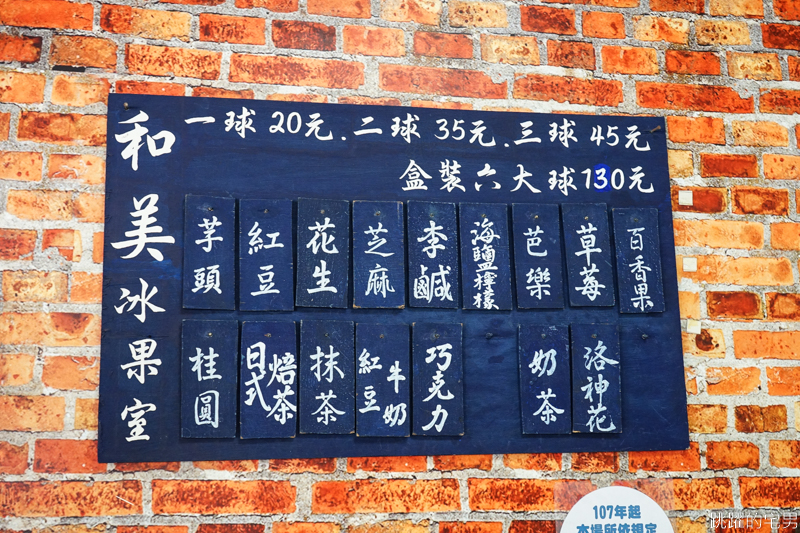 和美冰果室
一球 20元.二球 35元.三球 45元
盒裝六大球130元
芋頭
紅豆
花生
芝麻
李鹹
海鹽檸檬
芭樂
草莓
百香果
桂圓
日式焙茶
抹茶
紅豆牛奶
巧克力
奶茶
洛神花
107年起
本場所依規定
跳躍的宅男